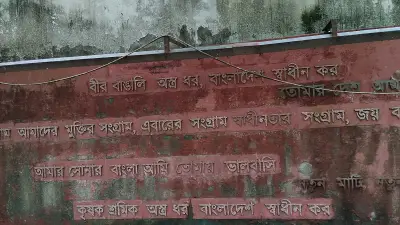 বীর বাঙালি অস্ত্র ধর, বাংলাদেশ স্বাধীন কর
তোমার দেশ আমা
আমাদের মুক্তির সংগ্রাম, এবারের সংগ্রাম স্বাধীনতার সংগ্রাম, জয় ব
আমার সোনার বাংলা আমি তোমায় ভালবাসি
মাটি,
কৃষক শ্রমিক অস্ত্র ধর বাংলাদেশ স্বাধীন কর